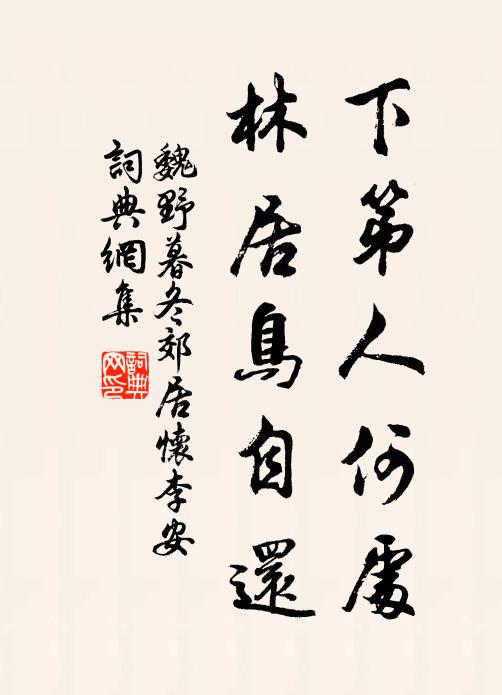 下第人何處
林居鳥自還
魏野暮冬郊居懷李安
詞典網集
詞典網印